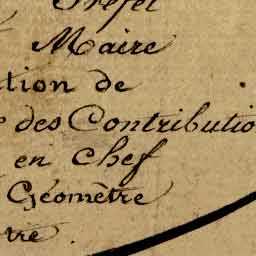 Préfet
Maire
tion de
des Contributio
en chef
Géomètre
tre